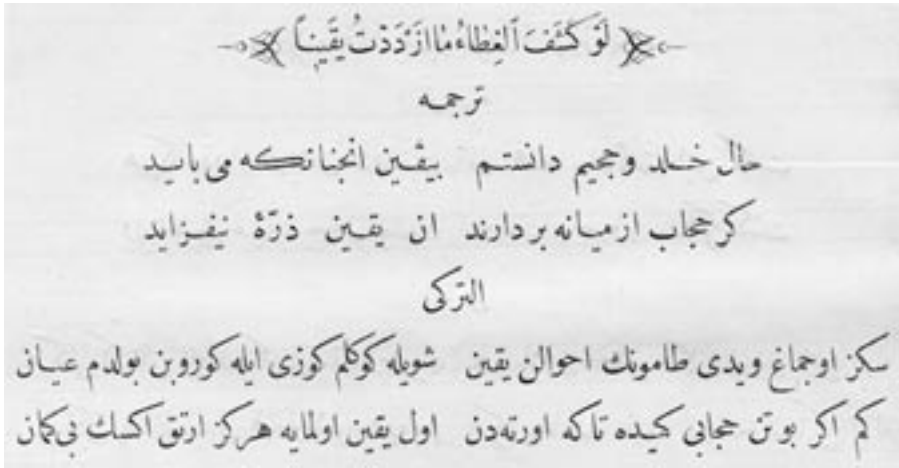 لَوْ كُشَفَ ٱلْغِطَاءُ مَا ازْدَدْتُ يَقَيِناً
ترجمه
حال خلد وجحيم دانستم بيقين انجنانكه می بايد
كر حجاب از ميانه بردارند ان يقين ذرّهٔ نيفزايد
التركی
سكز اوجماغ ويدی طامونك احوالن يقين شويله كوكلم كوزی ايله كوروبن بولدم عيان
كم اكر بو تن حجابی كيده تاكه اورته دن اول يقين اولمايه هركز ارتق اكسك بی كمان